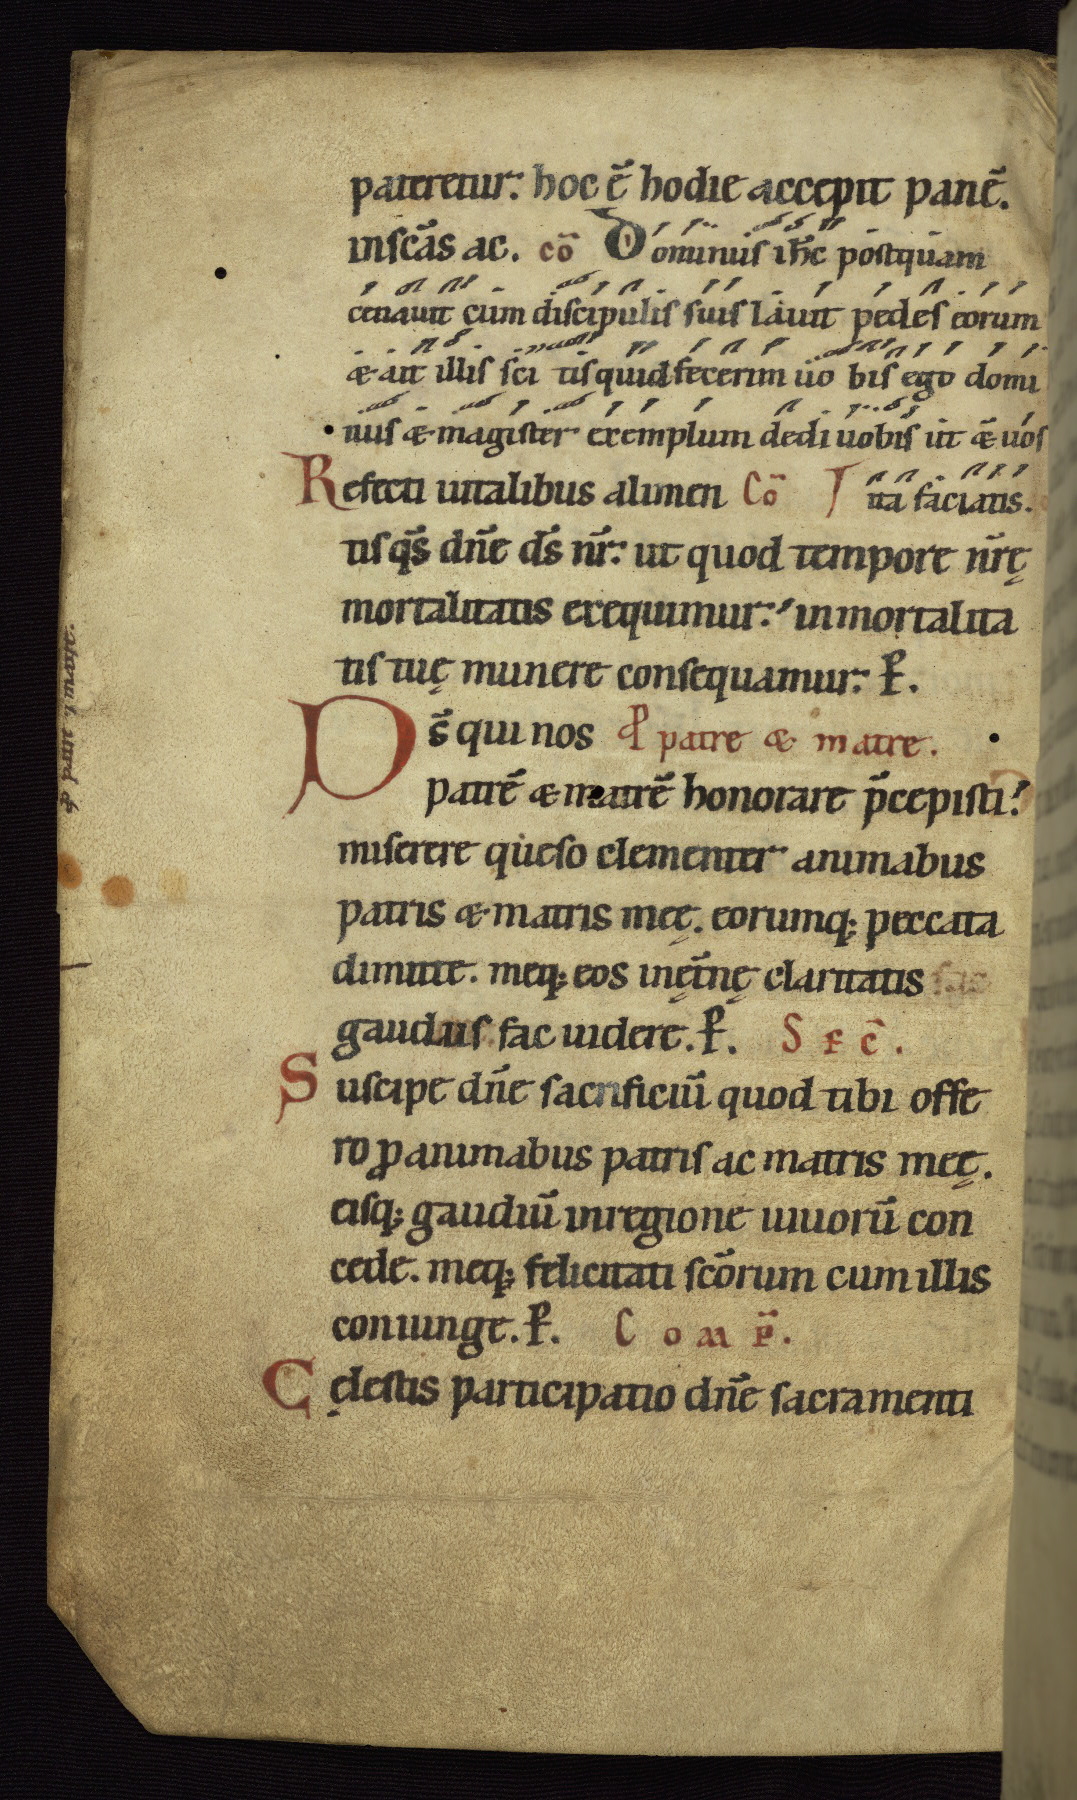 pateretur. hoc ē hodie accepit panē.
inscās ac. cō Dominus ih̄c postquam
cenauit cum discipulis suis lauit pedes eorum
æ ait illis sci tis quid fecerim uo bis ego domi
nus æ magister exemplum dedi uobis ut æ uos
Refecti uitalibus alimen Cō ita faciatis.
tis q̄s dn̄e ds̄ nr̄. ut quod tempore nr̄ę
mortalitatis exequimur. inmortalita
tis tuę munere consequamur. P̄.
Ds̄ qui nos ꝓ patre æ matre.
patrē æ matrē honorare p̄cepisti.
miserere queso clementer animabus
patris æ matris meę. eorumq; peccata
dimitte. meq; eos inęt̄nę claritatis
gaudiis fac uidere. P̄. S E C̄.
Suscipe dn̄e sacrificiū quod tibi offe
ro ꝓ animabus patris ac matris meę.
eisq; gaudiū inregione uiuorū con
cede. meq; felicitati scōrum cum illis
coniunge. P̄. C o m p̄.
Cęlestis participatio dn̄e sacramenti